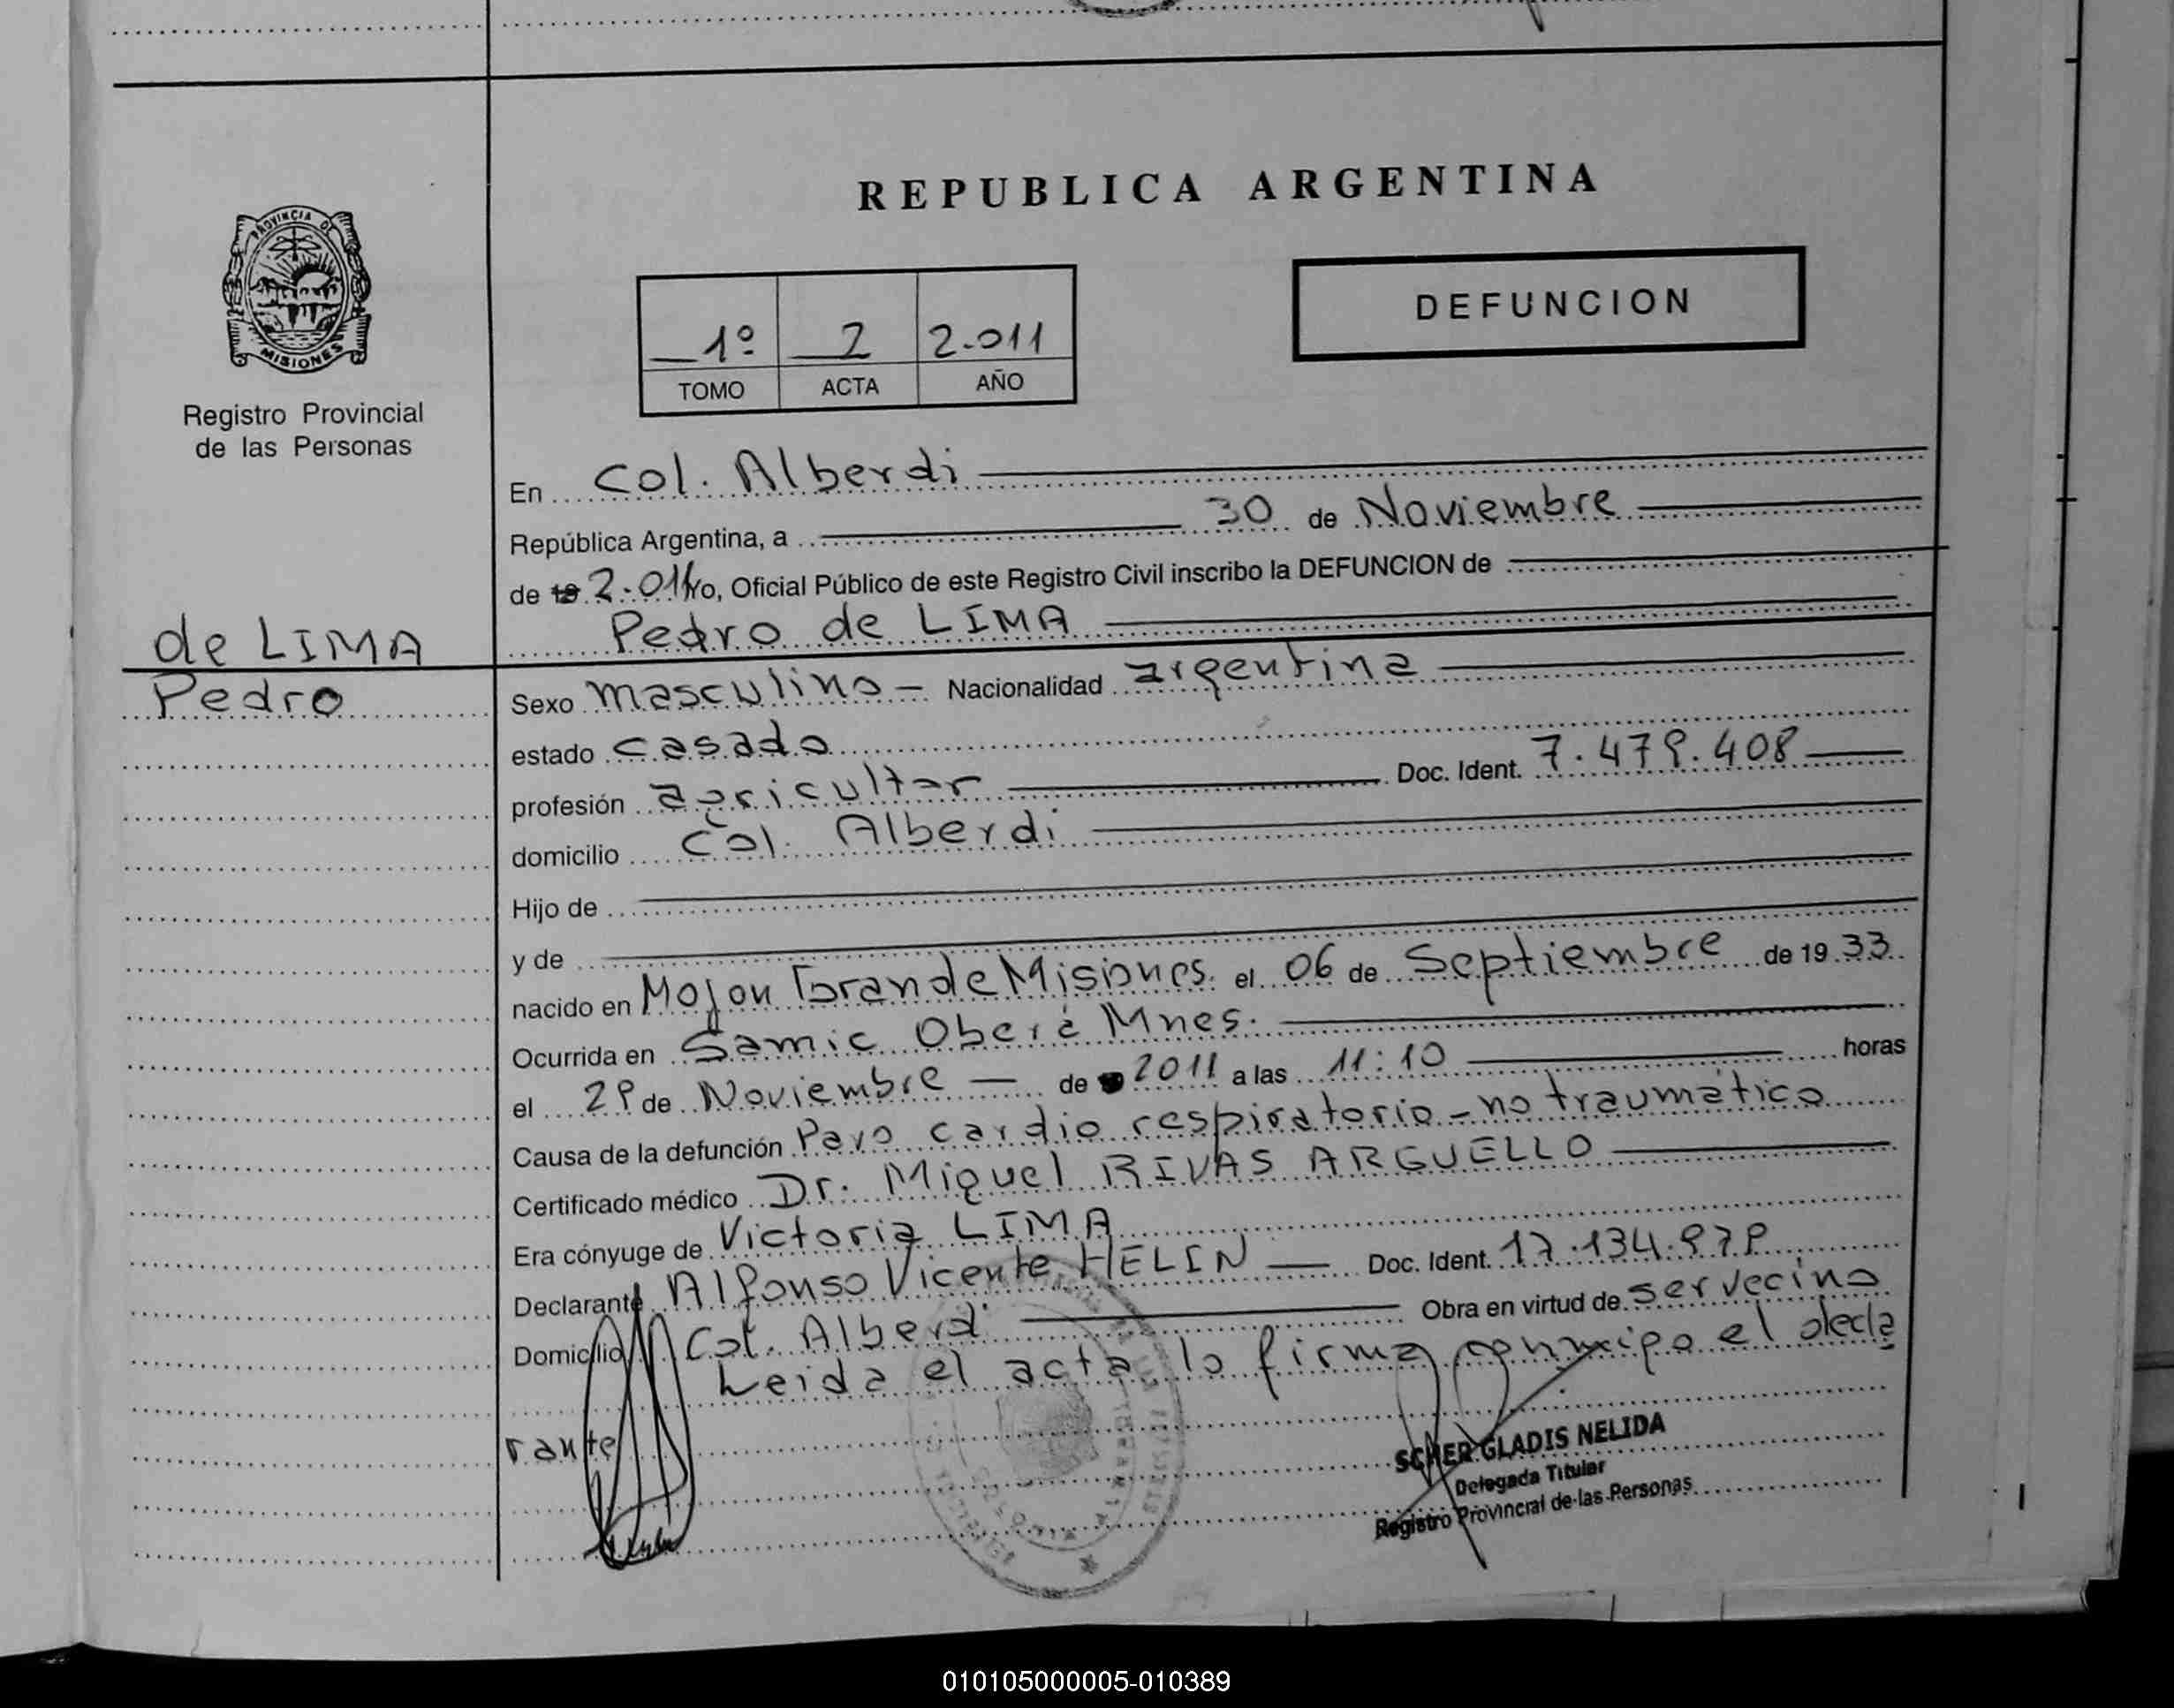 PROVINCIA DE
MISIONES
Registro Provincial
de las Personas
REPUBLICA ARGENTINA
DEFUNCION
1º 2 2.011
TOMO ACTA AÑO
En Col. Alberdi
República Argentina, a 30 de Noviembre
de 19 2.011 Yo, Oficial Público de este Registro Civil inscribo la DEFUNCION de
Pedro de LIMA
de LIMA
Pedro
Sexo masculino - Nacionalidad argentina
estado casado
profesión agricultor Doc. Ident. 7.479.408
domicilio Col. Alberdi
Hijo de
y de
nacido en Mojon Grande Misiones. el 06 de Septiembre de 1933
Ocurrida en Samic Oberá Mnes.
el 29 de Noviembre — de 2011 a las 11:10 horas
Causa de la defunción Paro cardio respiratorio - no traumático
Certificado médico Dr. Miguel RIVAS ARGUELLO
Era cónyuge de Victoria LIMA
Declarante Alfonso Vicente HELIN — Doc. Ident. 17.134.979
Domicilio Col. Alberdi Obra en virtud de ser vecino
Leida el acta lo firma conmigo el decla
rante
SCHER GLADIS NELIDA
Delegada Titular
Registro Provincial de las Personas
010105000005-010389